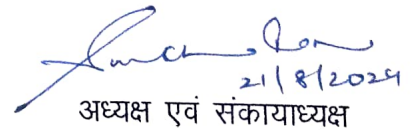 21/8/2024
अध्यक्ष एवं संकायाध्यक्ष